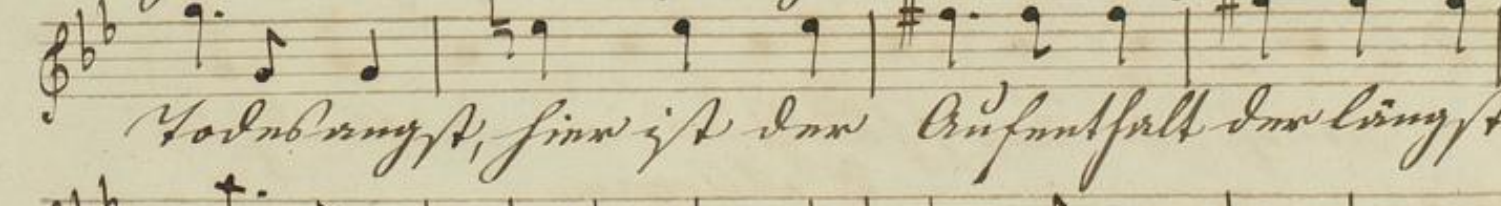 Todesangst, hier ist der Aufenthalt der längst